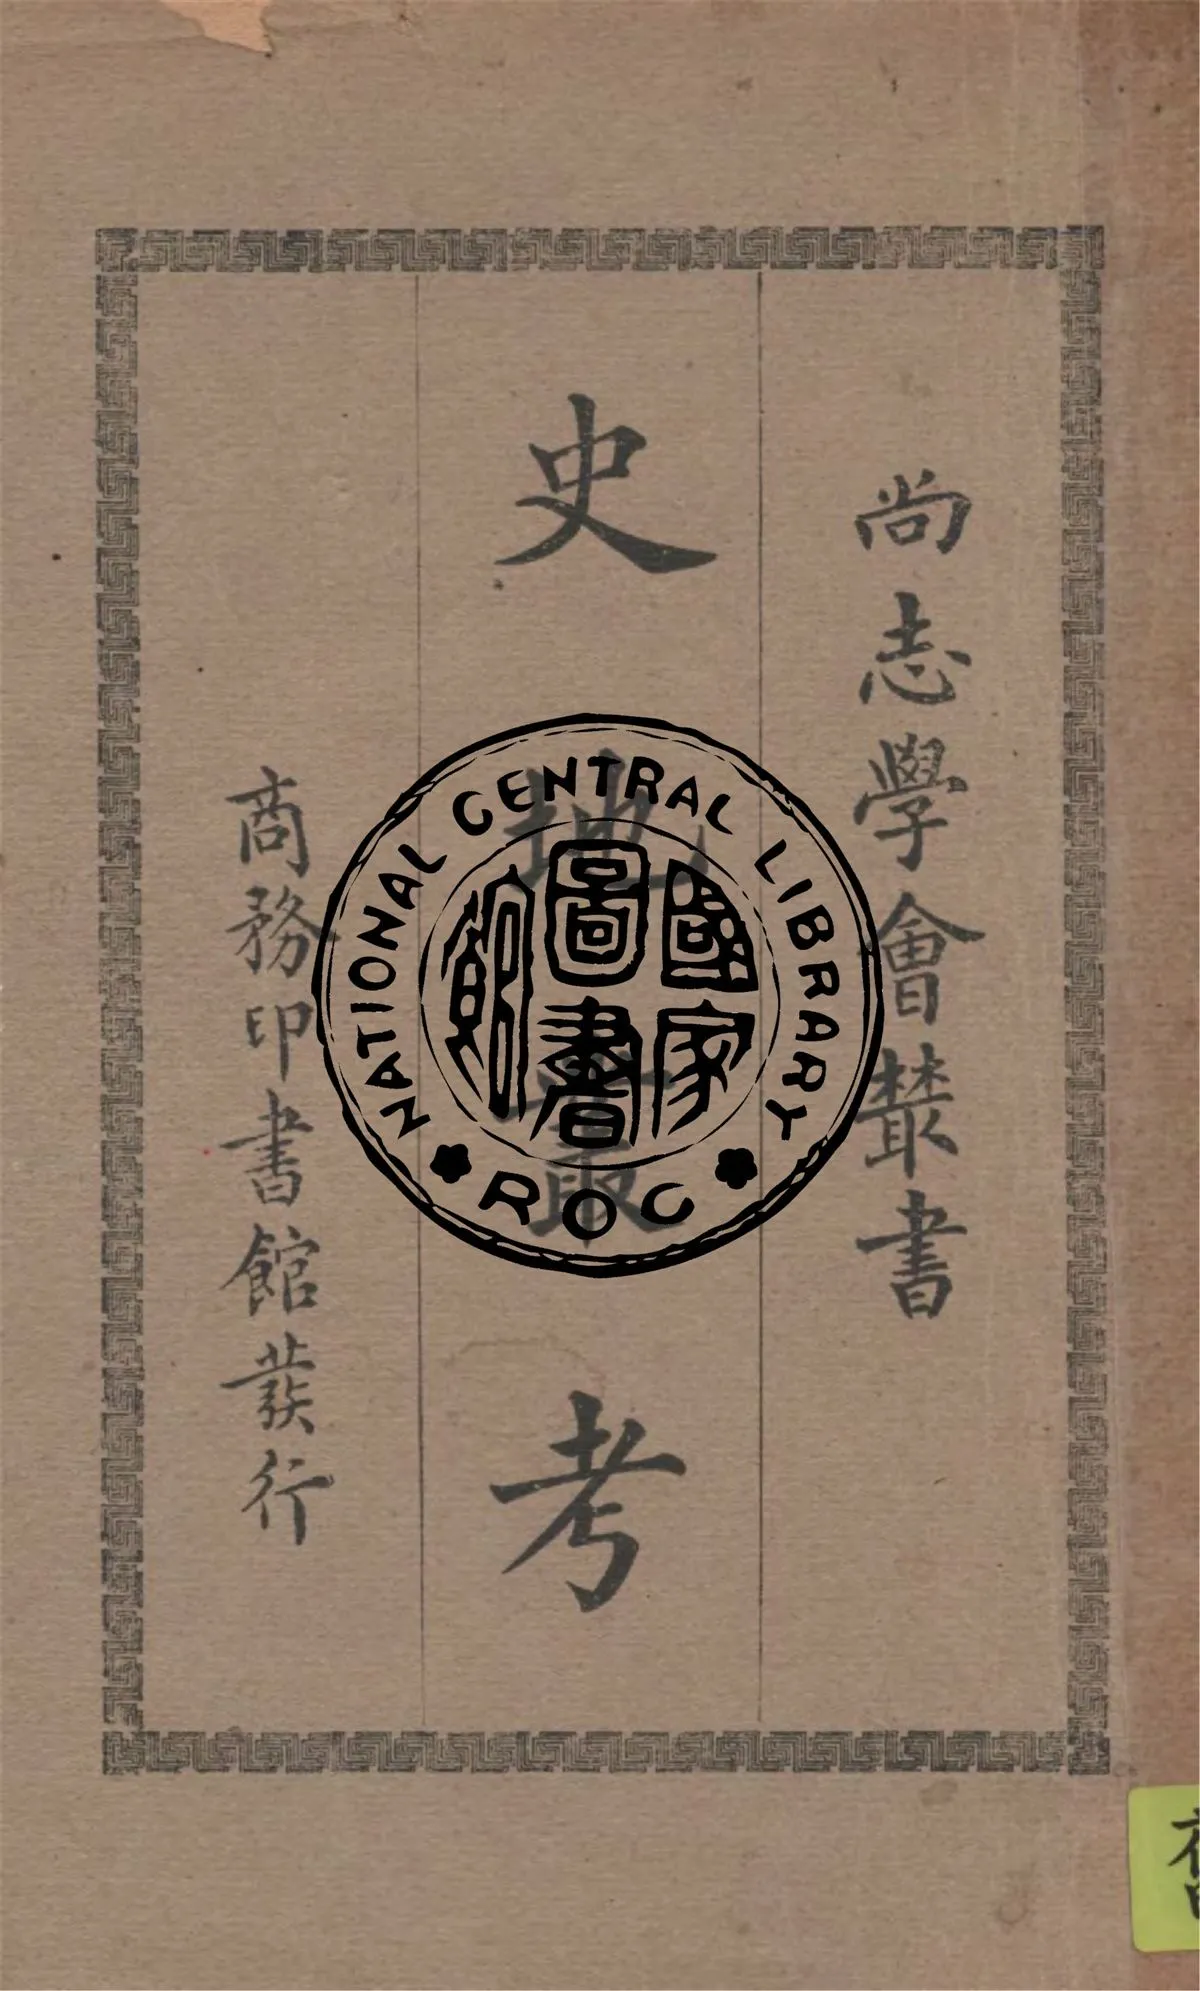 尚志學會叢書
史地叢考
商務印書館發行
NATIONAL CENTRAL LIBRARY
國家圖書館
ROC